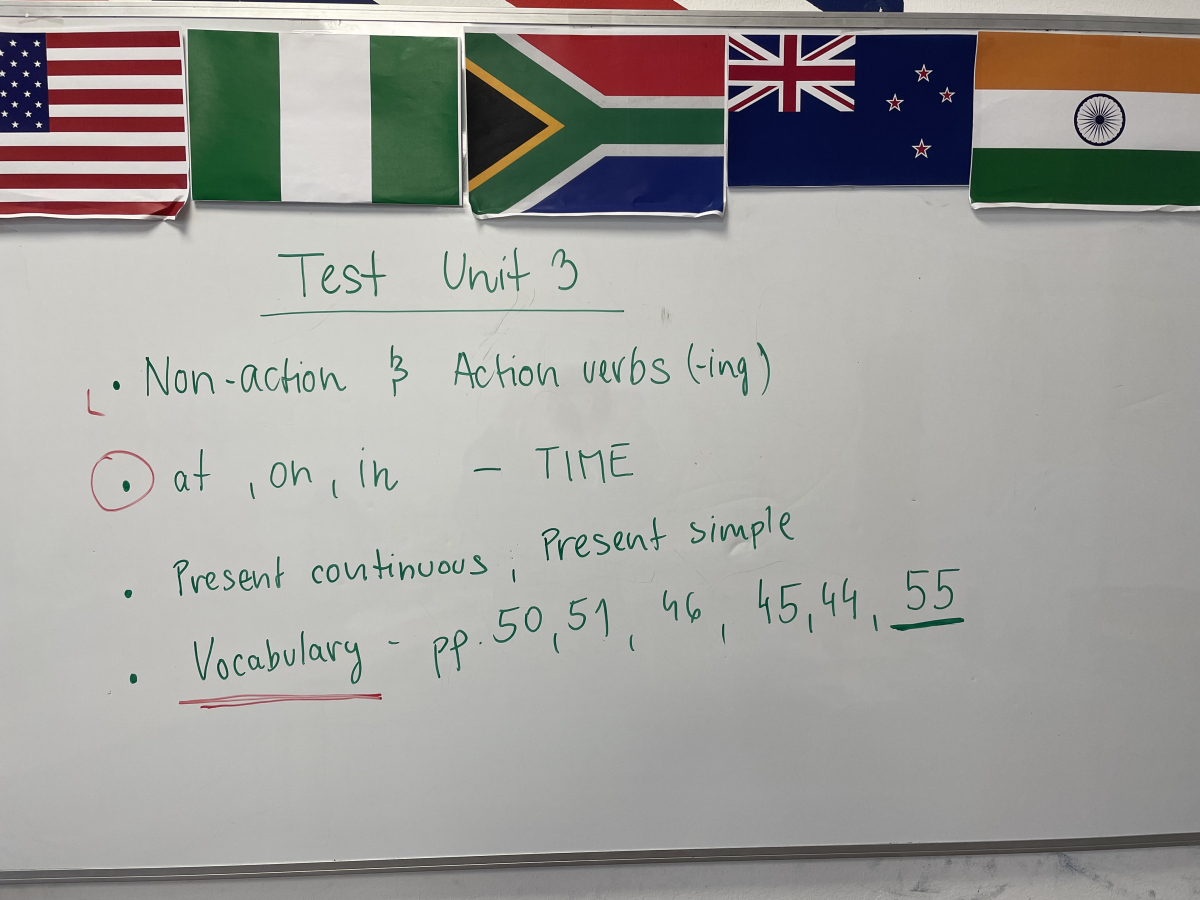 Test Unit 3
• Non-action & Action verbs (-ing)
• at, on, in - TIME
• Present continuous, Present simple
• Vocabulary - pp. 50, 51, 46, 45, 44, 55